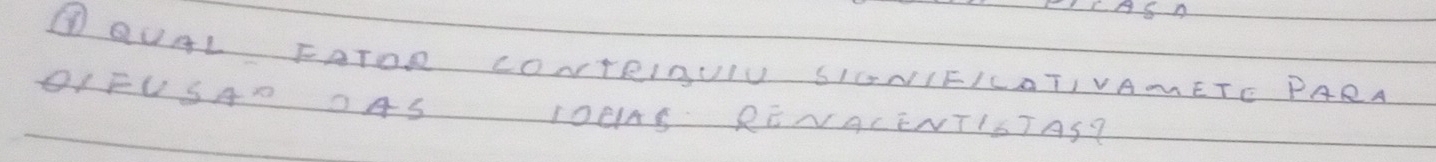 ① QUAL FATOR CONTRIBUIU SIGNIFICATIVAMETE PARA
DIFUSAO DAS IDEIAS RENACENTISTAS?